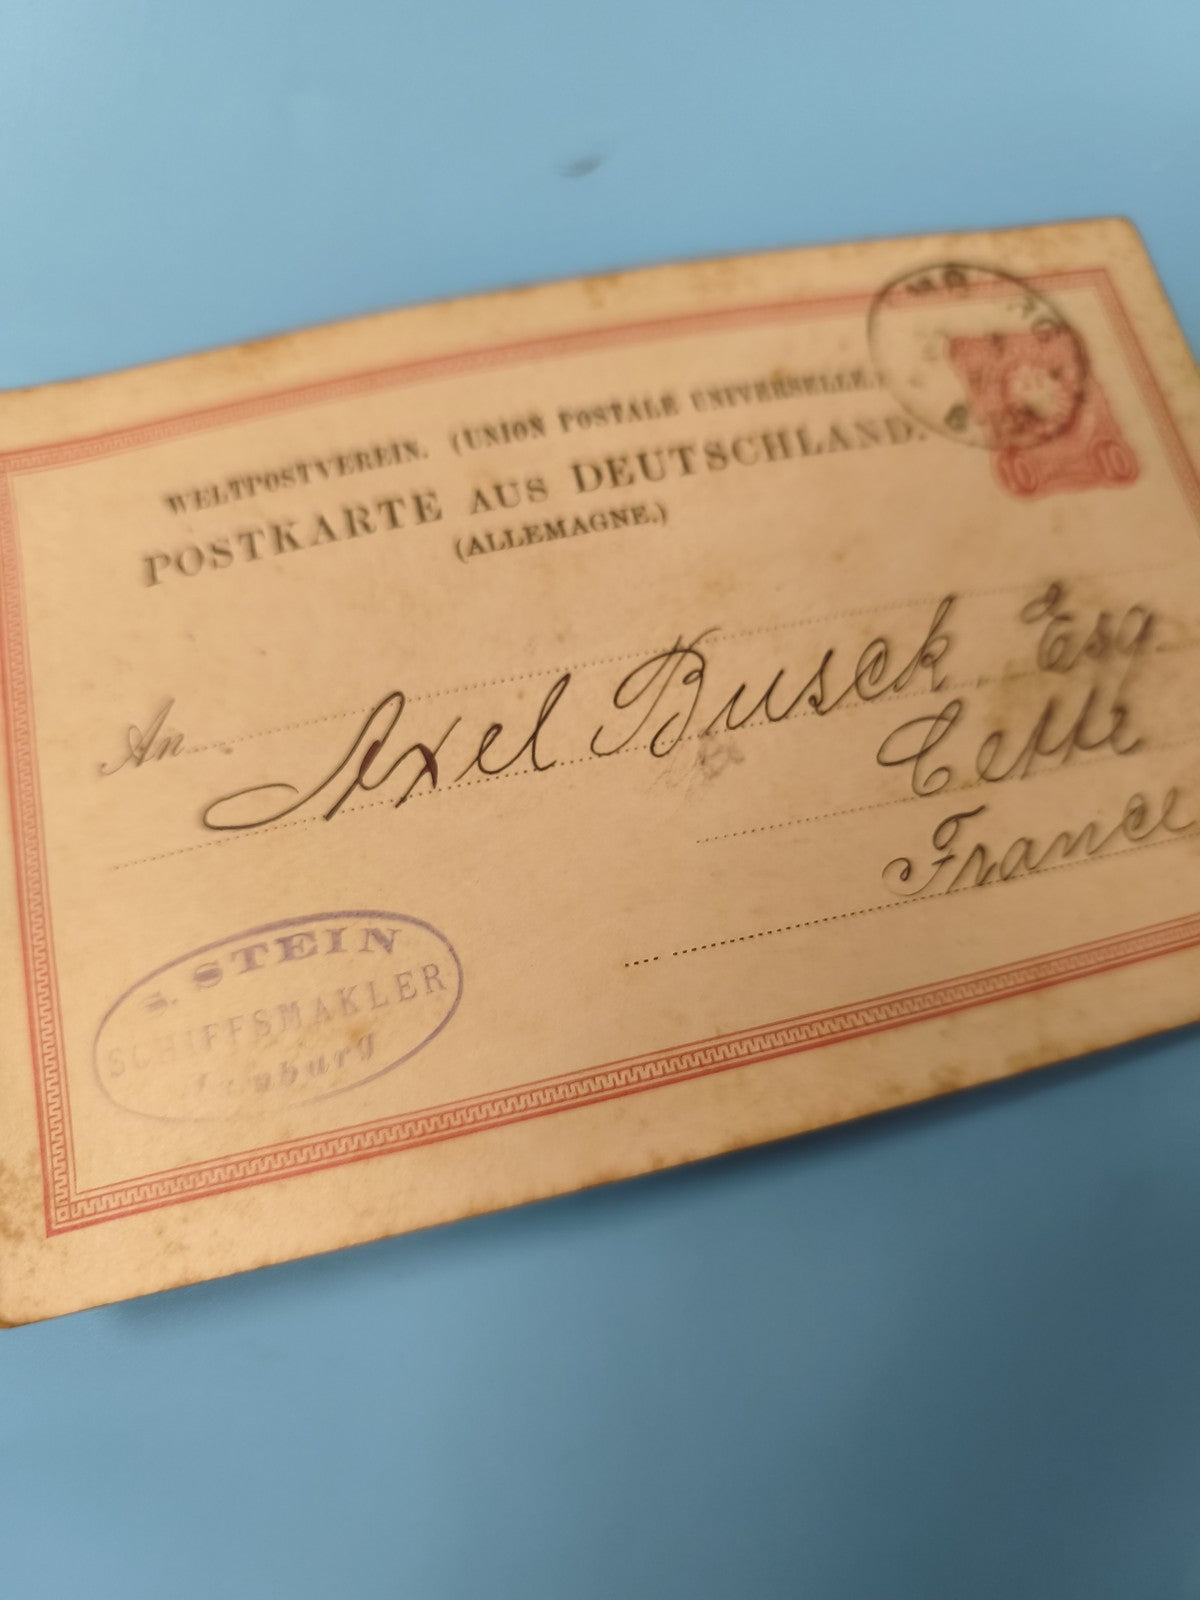 WELTPOSTVEREIN. (UNION POSTALE UNIVERSELLE.)
POSTKARTE AUS DEUTSCHLAND.
(ALLEMAGNE.)
10 10
An
Axel Busck Esq.
Cette
France
S. STEIN
SCHIFFSMAKLER